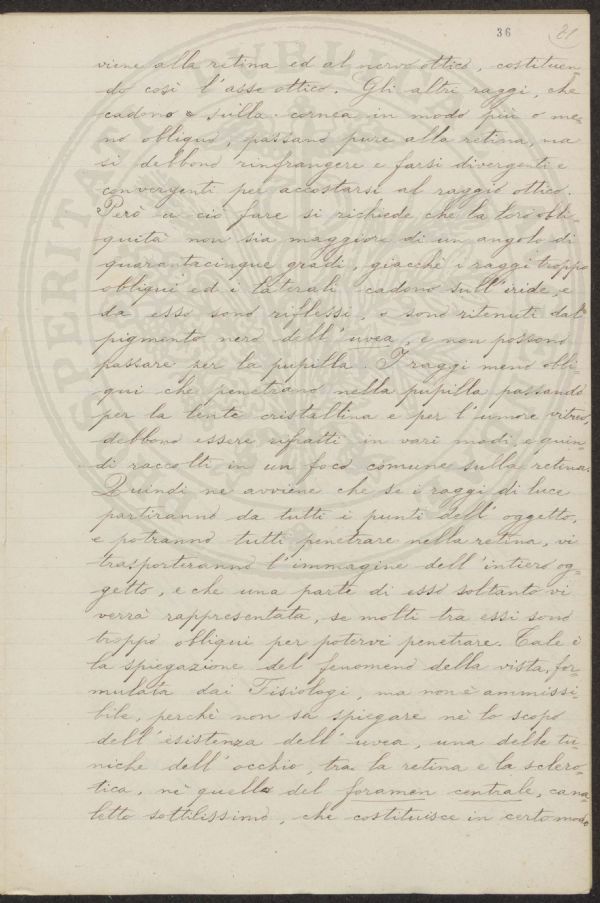 36
31
viene alla retina ed al nervo ottico, costituen=
do così l'asse ottico. Gli altri raggi, che
cadono sulla cornea in modo più o me=
no obliquo, passano pure alla retina, ma
si debbono rinfrangere e farsi divergenti e
convergenti per accostarsi al raggio ottico.
Però a ciò fare si richiede che la loro obli=
quità non sia maggiore di un angolo di
quarantacinque gradi, giacchè i raggi troppo
obliqui ed i laterali cadono sull'iride, e
da esso sono riflessi, o sono ritenuti dal
pigmento nero dell'uvea, e non possono
passare per la pupilla. I raggi meno obli=
qui che penetrano nella pupilla passando
per la lente cristallina e per l'umore vitreo,
debbono essere rifratti in vari modi, e quin=
di raccolti in un foco comune sulla retina.
Quindi ne avviene che se i raggi di luce
partiranno da tutti i punti dell'oggetto,
e potranno tutti penetrare nella retina, vi
trasporteranno l'immagine dell'intiero og=
getto, e che una parte di esso soltanto vi
verrà rappresentata, se molti tra essi sono
troppo obliqui per potervi penetrare. Tale è
la spiegazione del fenomeno della vista, for=
mulata dai Fisiologi, ma non è ammissi=
bile, perchè non sa spiegare nè lo scopo
dell'esistenza dell'uvea, una delle tu=
niche dell'occhio, tra la retina e la sclero=
tica, nè quello del foramen centrale, cana=
letto sottilissimo, che costituisce in certo modo